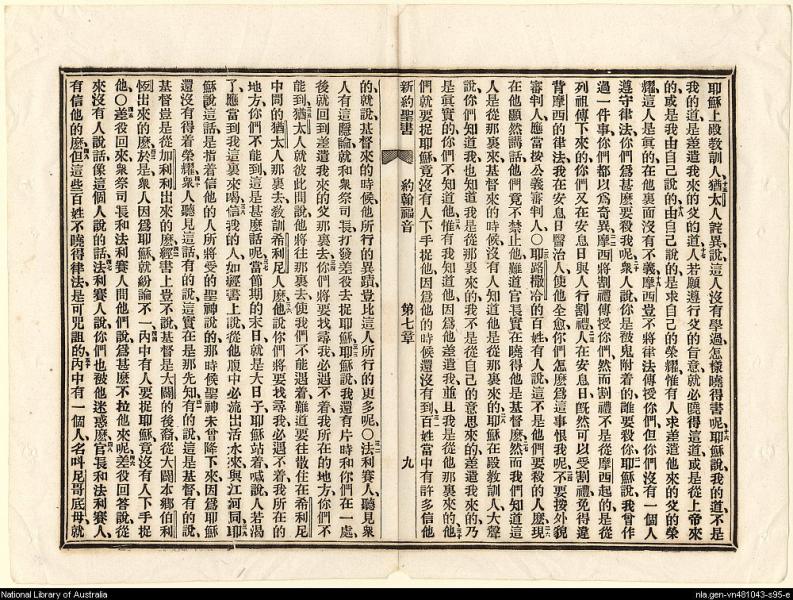 耶穌上殿教訓人、猶太人詫異說這人沒有學過、怎樣曉得書呢、耶穌說、我的道不是
我的道、是差遣我來的父的道、人若願遵行父的旨意、就必曉得這道或是從上帝來
的、或是我由自己說的、由自己說的、是求自己的榮耀、惟有人求差遣他來的父的榮
耀、這人是眞的、在他裏面沒有不義、摩西豈不將律法傳授你們、但你們沒有一個人
遵守律法、你們爲甚麽要殺我呢、衆人說、你是被鬼附着的、誰要殺你、耶穌說、我曾作
過一件事、你們都以爲奇異、摩西將割禮傳授你們、然而割禮不是從摩西起的、是從
列祖傳下來的、你們又在安息日與人行割禮、人在安息日旣然可以受割禮、免得違
背摩西的律法、我在安息日醫治人、使他全愈、你們怎麽爲這事恨我呢、不要按外貌
審判人、應當按公義審判人〇耶路撒冷的百姓有人說、這不是他們要殺的人麽、現
在他顯然講話、他們竟不禁止他、難道官長實在曉得他是基督麽、然而我們知道這
人是從那裏來、基督來的時候、沒有人知道他是從那裏來的、耶穌在殿教訓人、大聲
說、你們也知道我、是從那裏來的、我不是從自己的意思來的、差遣我來的、乃
是眞實的、你們不知道他、惟有我知道他、因爲他差遣我、並且我是從他那裏來的、他
們就要捉耶穌、竟沒有人下手捉他、因爲他的時候還沒有到、百姓當中有許多信他
新約聖書 約翰福音 第七章 九
的、就說、基督來的時候、他所行的異蹟、豈比這人所行的更多呢〇法利賽人、聽見衆
人有這隱論、就和衆祭司長打發差役去捉耶穌、耶穌說、我還有片時和你們在一處、
後就回到差遣我來的父那裏去、你們將要找尋我、必遇不着、我所在的地方、你們不
能到、猶太人就彼此問說、他將往那裏去、使我們不能遇着、難道要往散住在希利尼
中間的猶太人那裏去、教訓希利尼人麽、他說你們將要找尋我、必遇不着、我所在的
地方、你們不能到、這是甚麽話呢、當節期的末日、就是大日子、耶穌站着喊說、人若渴
了、應當到我這裏來喝、信我的人、如經書上說、從他腹中必流出活水來、與江河同、耶
穌說這話、是指着信他的人所將受的聖神說的、那時候聖神未曾降下來、因爲耶穌
還沒有得着榮耀、衆人聽見這話、有的說、這實在是那先知、有的說、這是基督、有的說、
基督豈是從加利利出來的麽、經書上豈不說、基督是大闢的後裔、從大闢本鄉伯利
恆出來的麽、於是衆人因爲耶穌就紛論不一、內中有人要捉耶穌、竟沒有人下手捉
他、〇差役回來、衆祭司長和法利賽人問他們說、爲甚麽不拉他來呢、差役回答說、從
來沒有人說話像這個人說的話、法利賽人說、你們也被他迷惑麽、官長和法利賽人、
有信他的麽、但這些百姓不曉得律法、是可咒詛的、內中有一個人、名叫尼哥底母、就
National Library of Australia
nla.gen-vn481043-s95-e